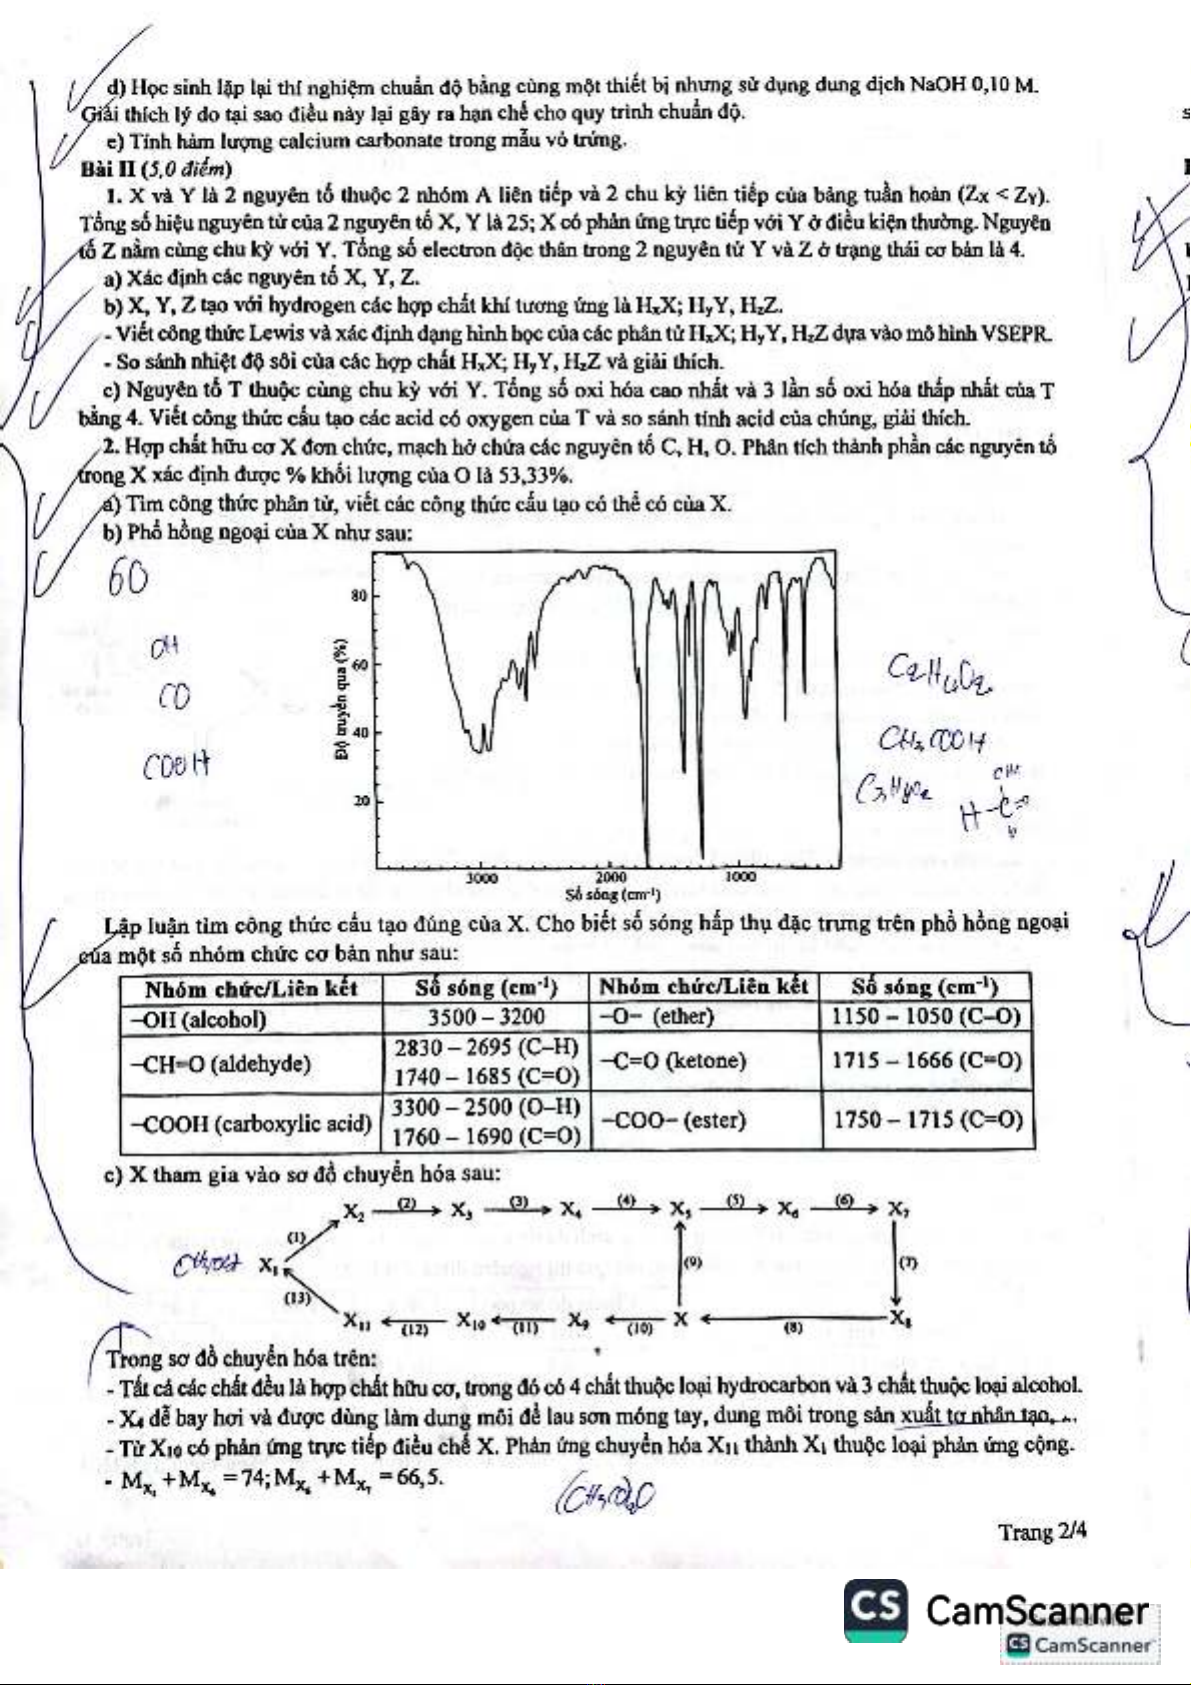 d) Học sinh lặp lại thí nghiệm chuẩn độ bằng cùng một thiết bị nhưng sử dụng dung dịch NaOH 0,10 M.
Giải thích lý do tại sao điều này lại gây ra hạn chế cho quy trình chuẩn độ.
e) Tính hàm lượng calcium carbonate trong mẫu vỏ trứng.
Bài II (5,0 điểm)
1. X và Y là 2 nguyên tố thuộc 2 nhóm A liên tiếp và 2 chu kỳ liên tiếp của bảng tuần hoàn (Zx < ZY).
Tổng số hiệu nguyên tử của 2 nguyên tố X, Y là 25; X có phản ứng trực tiếp với Y ở điều kiện thường. Nguyên
tố Z nằm cùng chu kỳ với Y. Tổng số electron độc thân trong 2 nguyên tử Y và Z ở trạng thái cơ bản là 4.
a) Xác định các nguyên tố X, Y, Z.
b) X, Y, Z tạo với hydrogen các hợp chất khí tương ứng là HxX; HyY, HzZ.
- Viết công thức Lewis và xác định dạng hình học của các phân tử HxX; HyY, HzZ dựa vào mô hình VSEPR.
- So sánh nhiệt độ sôi của các hợp chất HxX; HyY, HzZ và giải thích.
c) Nguyên tố T thuộc cùng chu kỳ với Y. Tổng số oxi hóa cao nhất và 3 lần số oxi hóa thấp nhất của T
bằng 4. Viết công thức cấu tạo các acid có oxygen của T và so sánh tính acid của chúng, giải thích.
2. Hợp chất hữu cơ X đơn chức, mạch hở chứa các nguyên tố C, H, O. Phân tích thành phần các nguyên tố
trong X xác định được % khối lượng của O là 53,33%.
a) Tìm công thức phân tử, viết các công thức cấu tạo có thể có của X.
b) Phổ hồng ngoại của X như sau:
60
OH
CO
COOH
80
60
40
20
Độ truyền qua (%)
3000 2000 1000
Số sóng (cm-1)
C2H4O2
CH3COOH
Lập luận tìm công thức cấu tạo đúng của X. Cho biết số sóng hấp thụ đặc trưng trên phổ hồng ngoại
của một số nhóm chức cơ bản như sau:
Nhóm chức/Liên kết Số sóng (cm-1) Nhóm chức/Liên kết Số sóng (cm-1)
–OH (alcohol) 3500 – 3200 –O– (ether) 1150 – 1050 (C–O)
–CH=O (aldehyde) 2830 – 2695 (C–H) 1740 – 1685 (C=O) –C=O (ketone) 1715 – 1666 (C=O)
–COOH (carboxylic acid) 3300 – 2500 (O–H) 1760 – 1690 (C=O) –COO– (ester) 1750 – 1715 (C=O)
c) X tham gia vào sơ đồ chuyển hóa sau:
X2 (2) X3 (3) X4 (4) X5 (5) X6 (6) X7
(1)
CH3OH X1 (9) (7)
(13)
X11 (12) X10 (11) X9 (10) X (8) X8
Trong sơ đồ chuyển hóa trên:
- Tất cả các chất đều là hợp chất hữu cơ, trong đó có 4 chất thuộc loại hydrocarbon và 3 chất thuộc loại alcohol.
- X4 dễ bay hơi và được dùng làm dung môi để lau sơn móng tay, dung môi trong sản xuất tơ nhân tạo, ...
- Từ X10 có phản ứng trực tiếp điều chế X. Phản ứng chuyển hóa X11 thành X1 thuộc loại phản ứng cộng.
(CH3CO)2O
Trang 2/4
CS CamScanner
CS CamScanner